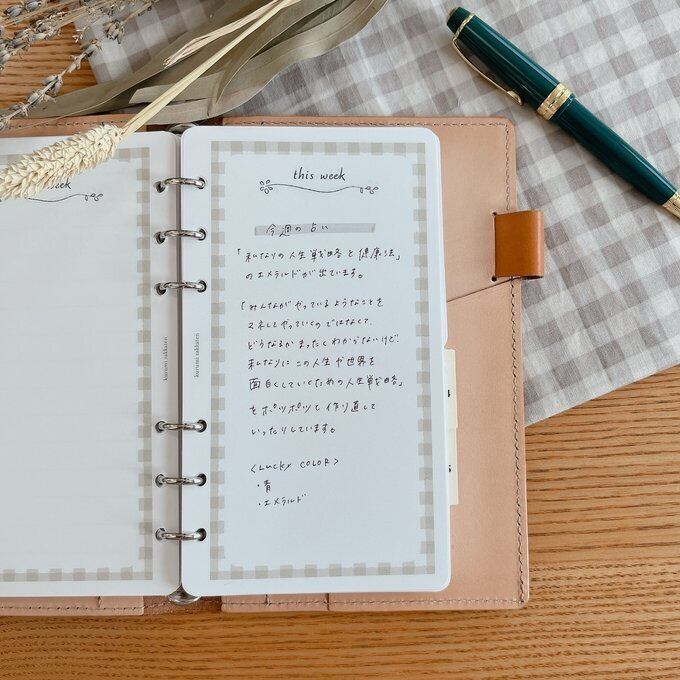 week
this week
今週の占い
「私なりの人生戦略と健康法」
のエメラルドが出ています。
「みんながやっているようなことを
マネしてやっていくのではなくて、
どうなるかまったくわからないけど、
私なりにこの人生や世界を
面白くしていくための人生戦略」
をポツポツと作り直して
いったりしています。
<Lucky COLOR>
・青
・エメラルド
kurumi rakkaten
kurumi rakkaten